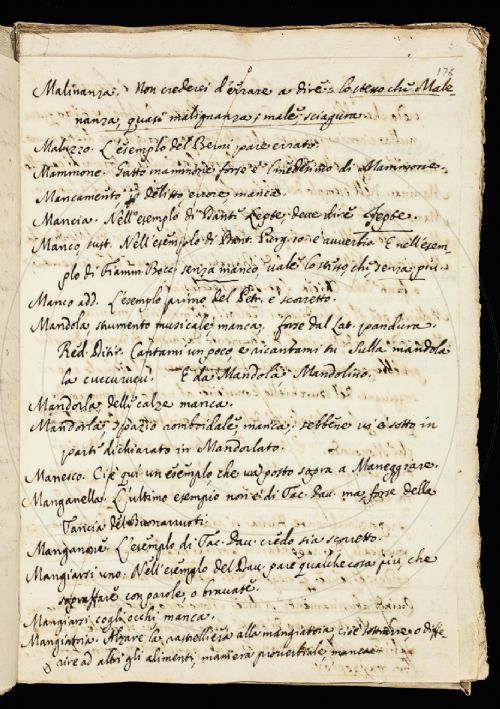 176
Malinanza. Non crederei d'errare a dire lo stesso che Male-
nanza, quasi malignanza; male, sciagura.
Malizzo. L'esempio del Berni pare errato.
Mammone. Gatto mammone forse è l'medesimo di Mammone.
Mancamento p delitto errore, manca.
Mancia. Nell'esempio di Dante Lepte, deve dire Jepte.
Manco, sust. Nell'esempio di Dant. Purg. 10. è avverbio. E nell'esem-
pio di Fiamm. Bocc. senza manco, vale lo stesso, che senza più.
Manco add. L'esempio primo del Petr. è scorretto.
Mandola, strumento musicale, manca, forse dal Lat. pandura.
Red. Ditir. Cantami un poco e ricantami tu Sulla mandola
la cuccurucù. E da Mandola Mandolino.
Mandorla delle calze manca.
Mandorla spazio romboidale, manca; sebbene vi è sotto in
parte dichiarato in Mandorlato.
Manesco. Ci è qui un esempio che va posto sopra a Maneggiare.
Manganella. L'ultimo esempio non è di Tac. Dav. ma forse della
Tancia del Buonarruoti.
Manganare. L'esempio di Tac. Dav. credo sia scorretto.
Mangiarsi uno. Nell'esempio del Dav. pare qualche cosa più che
sopraffare con parole, o bravate.
Mangiarsi cogli occhi manca.
Mangiatoia. Alzare la rastrelliera alla mangiatoia cioè sottrarre o diffe
rire ad altri gli alimenti, maniera proverbiale, manca.